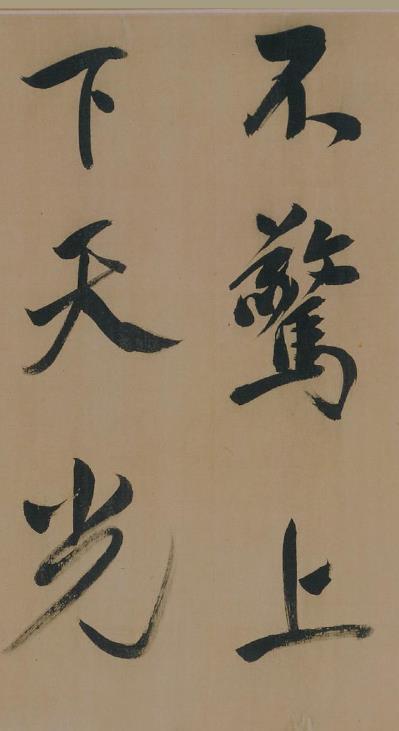 不驚上
下天光